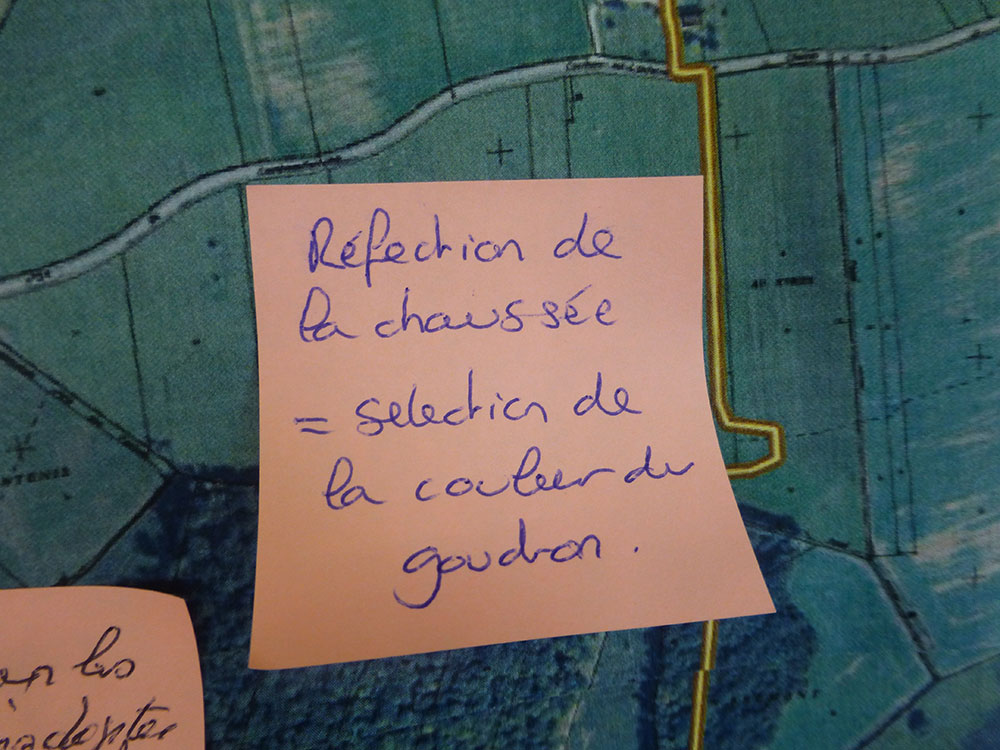 Réfection de
la chaussée
= selection de
la couleur du
goudron.
les